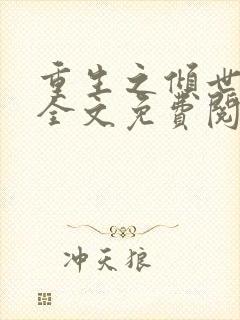 重生之倾世
全文免費閱
冲天狼